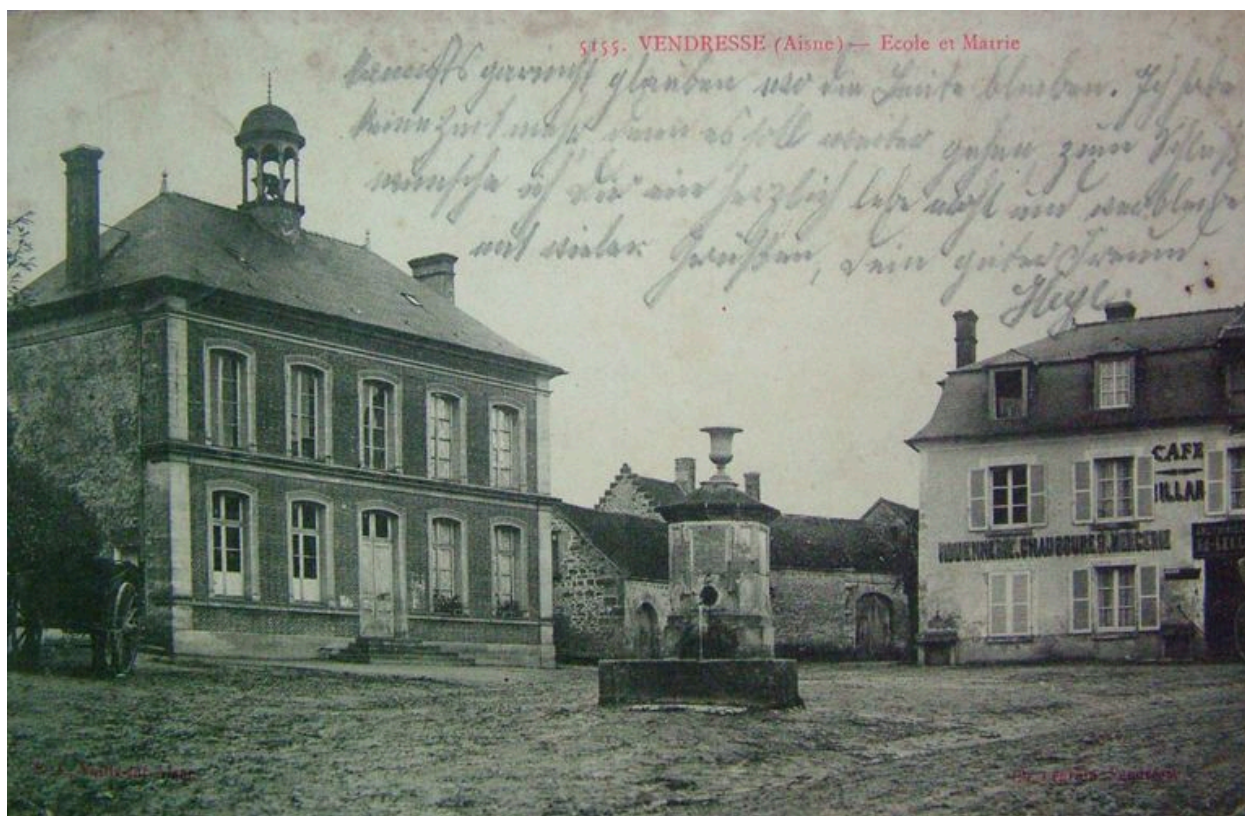 5155. VENDRESSE (Aisne) — Ecole et Mairie
kannst garnicht glauben wo die Leute bleiben. Ich habe
keine Zeit mehr denn es soll weiter gehen, zum Schluß
wünsche ich dir ein herzlich lebe wohl und verbleibe
mit vielen Grüßen, dein guter Freund
CAFE
ILLAR
ROUENNERIE. CHAUSSURES. MERCERIE